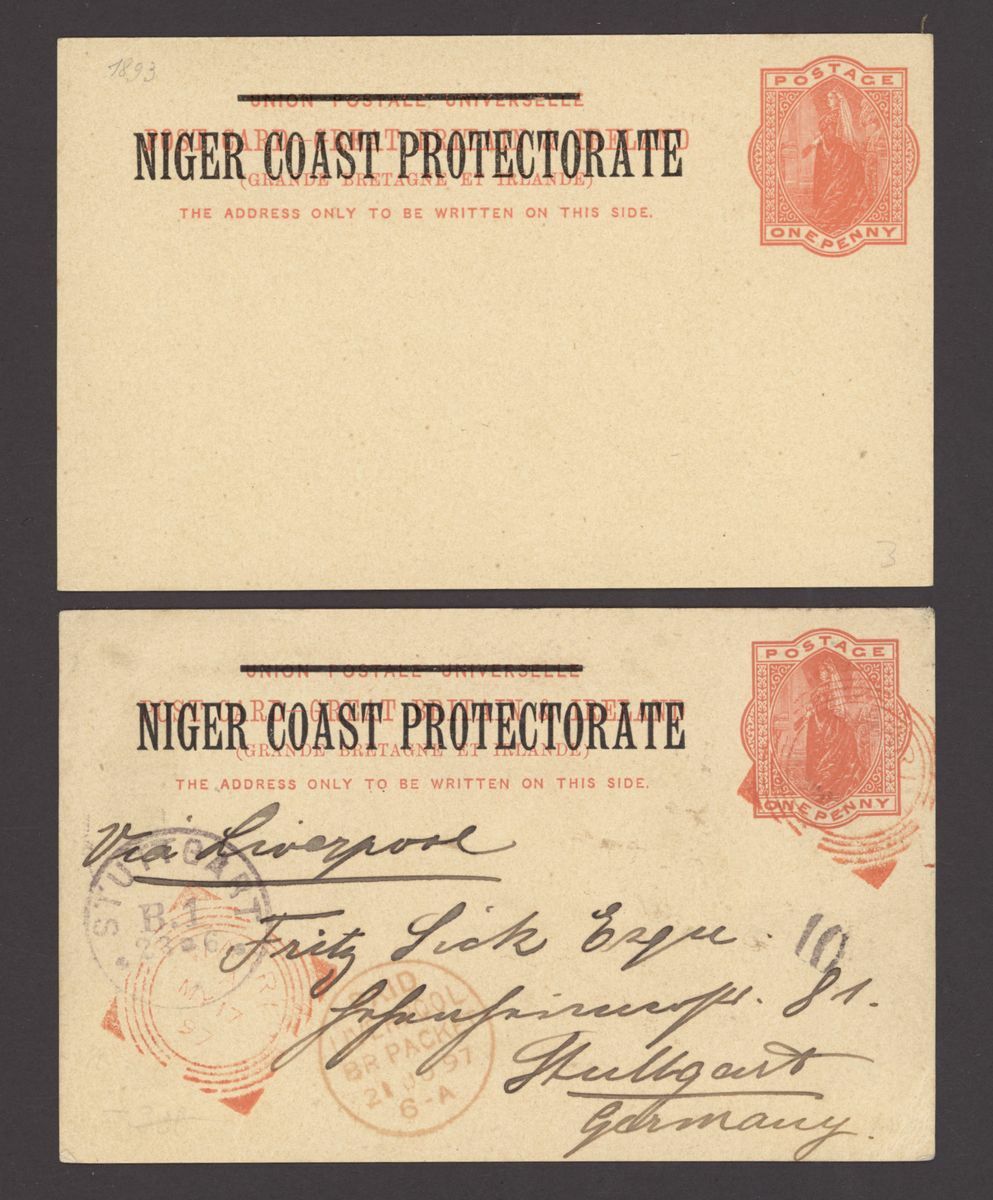 1893
UNION POSTALE UNIVERSELLE
POST CARD GREAT BRITAIN & IRELAND
NIGER COAST PROTECTORATE
(GRANDE BRETAGNE ET IRLANDE)
THE ADDRESS ONLY TO BE WRITTEN ON THIS SIDE.
POSTAGE
ONE PENNY
3
UNION POSTALE UNIVERSELLE
POST CARD GREAT BRITAIN & IRELAND
NIGER COAST PROTECTORATE
(GRANDE BRETAGNE ET IRLANDE)
THE ADDRESS ONLY TO BE WRITTEN ON THIS SIDE.
POSTAGE
ONE PENNY
Via Liverpool
STUTTGART
B.1
23 6
Fritz Sick Esqre.
10
81.
Stuttgart
Germany.
MY 17
97
PAID
LIVERPOOL
BR PACKET
21 JU 97
6-A